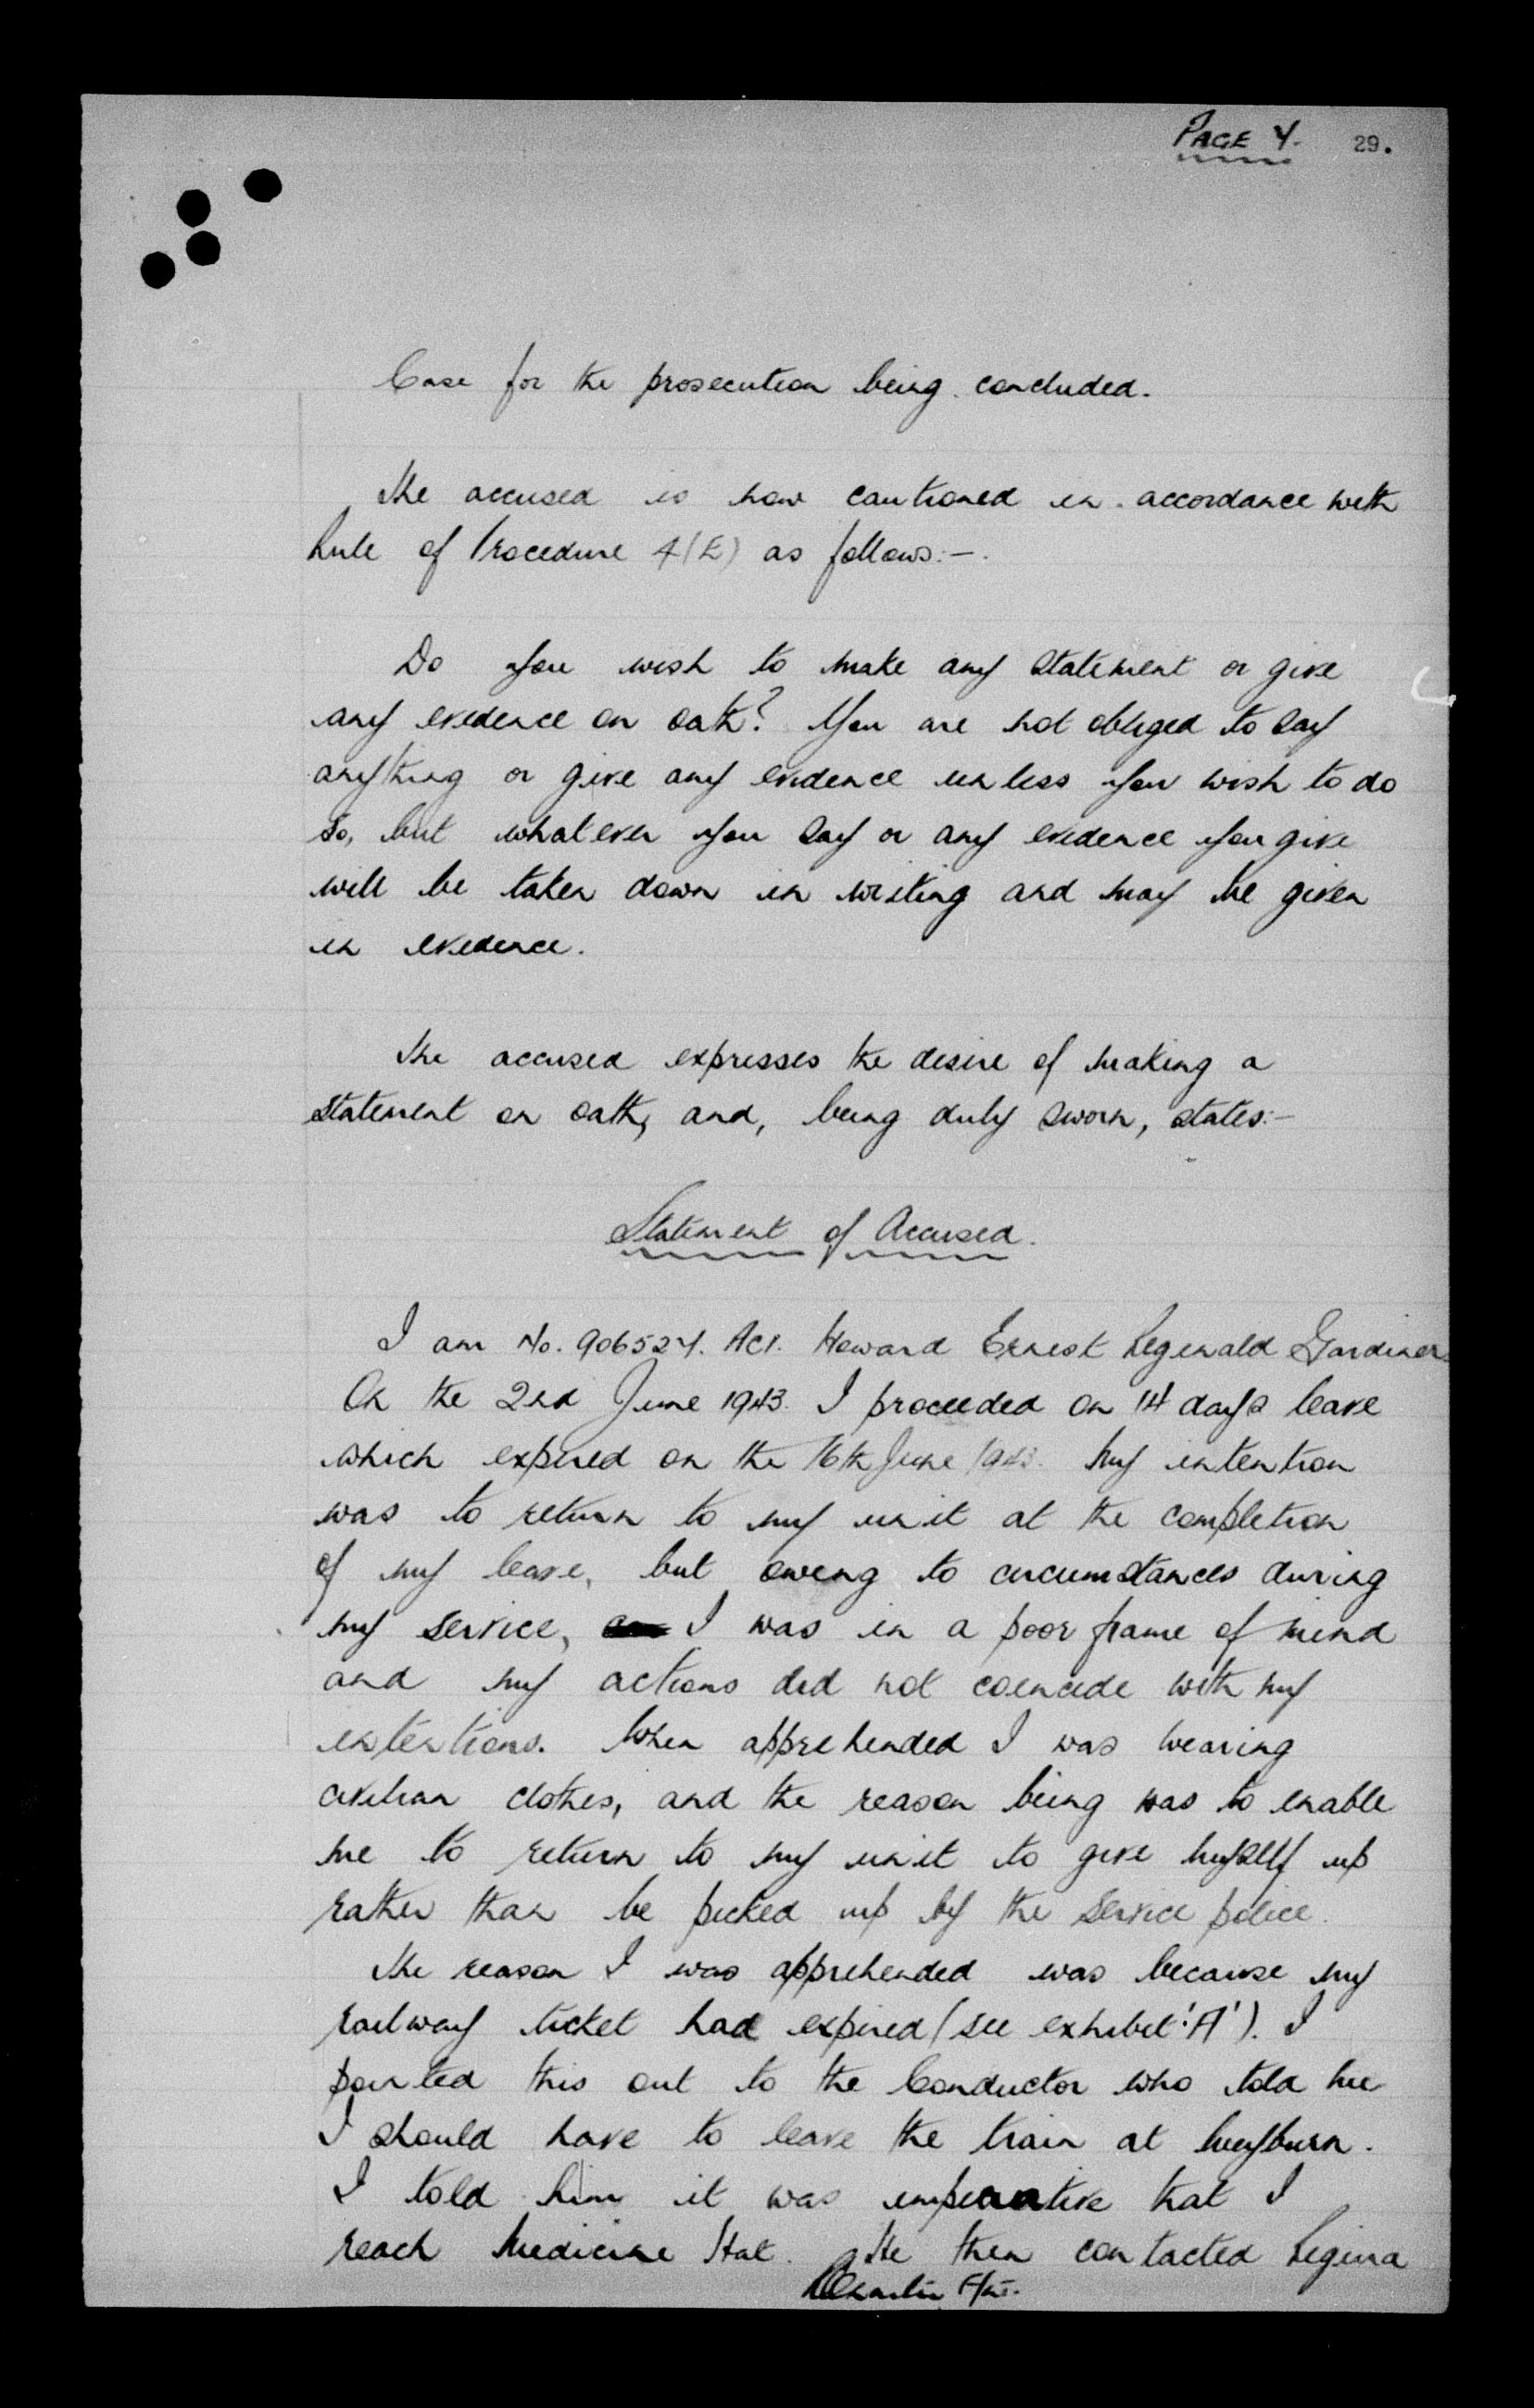 PAGE 4. 29.
Case for the prosecution being concluded.
The accused is now cautioned in accordance with
Rule of Procedure 4(E) as follows:-
Do you wish to make any statement or give
any evidence on oath? You are not obliged to say
anything or give any evidence unless you wish to do
so, but whatever you say or any evidence you give
will be taken down in writing and may be given
in evidence.
The accused expresses the desire of making a
statement on oath, and, being duly sworn, states:-
Statement of Accused.
I am No. 906524. AC1. Howard Ernest Reginald Gardiner.
On the 2nd June 1943. I proceeded on 14 days leave
which expired on the 16th June 1943. My intention
was to return to my unit at the completion
of my leave, but owing to circumstances during
my service, I was in a poor frame of mind
and my actions did not coincide with my
intentions. When apprehended I was wearing
civilian clothes, and the reason being was to enable
me to return to my unit to give myself up
rather than be picked up by the service police.
The reason I was apprehended was because my
railway ticket had expired (see exhibit 'A'). I
pointed this out to the Conductor who told me
I should have to leave the train at Weyburn.
I told him it was imperative that I
reach Medicine Hat. He then contacted Regina
F/Lt.